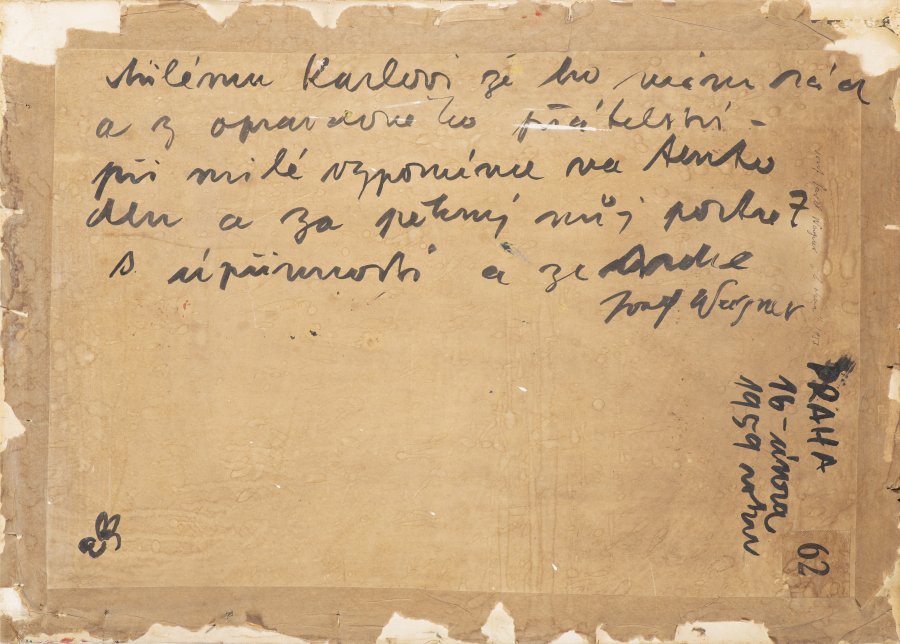 Milému Karlovi že ho mám rád
a z opravdového přátelství -
při milé vzpomínce na tento
den a za pěkný můj portret
S upřímností a ze srdce
Josef Wagner
PRAHA
16 - února
1959 roku
62